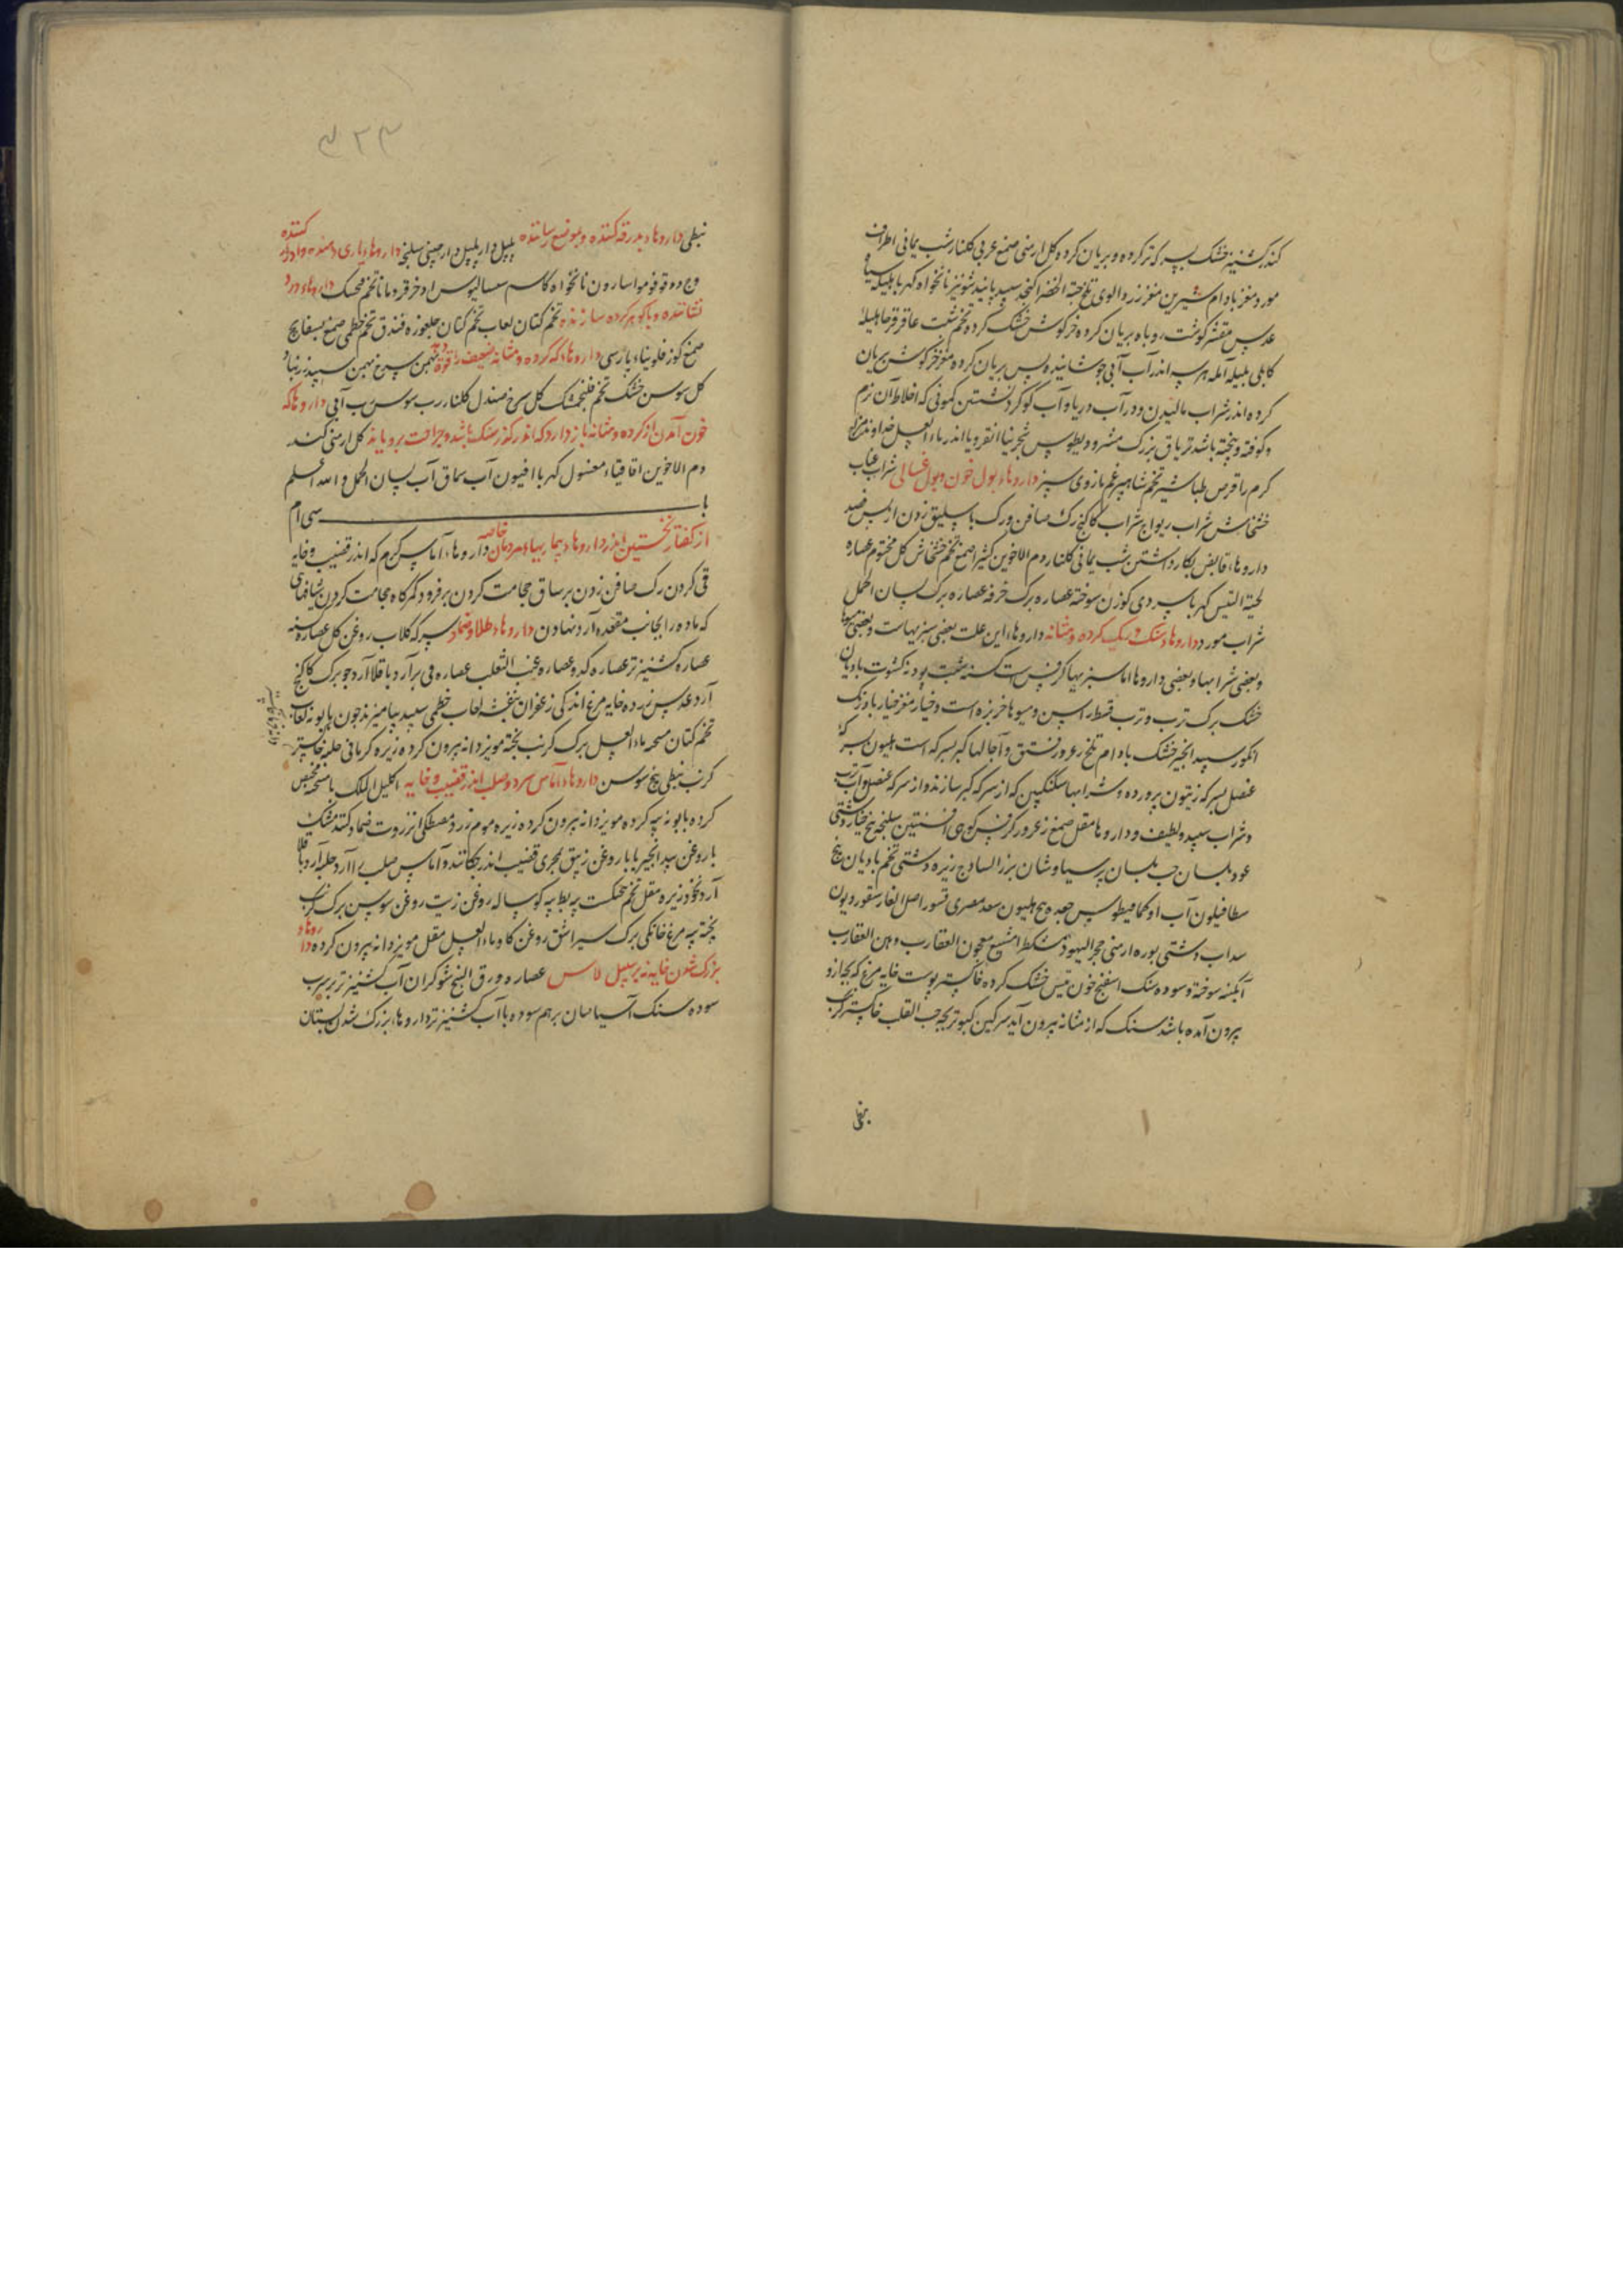 کند کشنیز خشک بسرکه تر کرده و بریان کرده کل ارمنی صمغ عربی کلنار شب یمانی اطراف
مورد مغز بادام شیرین مغز زردالوی تلخ حبة الخضرا کنجد سپید پانید شونیز نانخواه کهربا هلیله سیاه
عدس مقشر کوشت روباه بریان کرده خرکوش خشک کرده تخم شبت عاقرقرحا هلیله
کابلی بلیله آمله هر سه اندر آب آبی جوشانیده پس بریان کرده مغز خرکوش بریان
کرده اندر شراب مالیدن و در آب دریا و آب کوکرد نشستن کمونی که اخلاط آن نرم
و کوفته و پخته باشد تریاق بزرک مثرودیطوس شجرینا انقرویا اندر ماء العسل خداوند مزاج
کرم را قرص طباشیر تخم شاهسپرغم مازوی سبز داروهاء بول خون و بول غسالی شراب عناب
خشخاش شراب ریواج شراب کاکنج رک صافن و رک باسلیق زدن از پس فصد
داروهاء قابض بکار داشتن شب یمانی کلنار دم الاخوین کثیرا صمغ تخم خشخاش کل مختوم عصاره
لحیة التیس کهربا سردی کوزن سوخته عصاره برک خرفه عصاره برک لسان الحمل
شراب مورد داروهاء سنک و ریک کرده و مثانه داروهاء این علت بعضی سبزیهاست و بعضی میوها
و بعضی شرابها و بعضی داروها اما سبزیها کرفس است کسنه شبت پودنه کشوت بادیان
خشک برک ترب و ترب قسطر اسن و میوها خربزه است و خیار مغز خیار بادرنک
انکور سپید انجیر خشک بادام تلخ زعرور فستق و آچالها کبر بسرکه است هلیون بسرکه
عنصل بسرکه زیتون پرورده و شرابها سکنکبین که از سرکه کبر سازند و از سرکه عنصل و آب ترب
و شراب سپید و لطیف و داروها مقل صمغ زعرور کرفس کوهی افسنتین سلیخه بیخ خیار دشتی
عود بلسان حب بلسان پرسیاوشان بزر الساذج زیره دشتی تخم بادیان بیخ
سطافیلون آب او کمافیطوس جعده بیخ هلیون سعد مصری قشور اصل الغار سقوردیون
سداب دشتی بوره ارمنی حجر الیهود مشکطرامشیع معجون العقارب دهن العقارب
آبکینه سوخته و سوده سنک اسفنج خون تیس خشک کرده خاکستر پوست خایه مرغ که بچه ازو
برون آمده باشد سنک که از مثانه برون آید سرکین کبوتر بچه حب القلب خاکستر کرنب
نبطی
۳۲۳
نبطی داروهاء بدرقه کننده و بموضع رساننده پلپل دارپلپل دارچینی سلیخه داروهاء یاری دهنده و ادرار کننده
وج دوقو فو مو اسارون نانخواه کاشم سسالیوس اذخر قردمانا تخم خسک داروهاء درد
نشاننده و باکوهر کرده سازنده تخم کتان لعاب تخم کتان جلغوزه فندق تخم خطمی صمغ بسفایج
صمغ کوز فلونیاء پارسی داروهاء که کرده و مثانه ضعیف را قوة دهد بهمن سرخ بهمن سپید زرنباد
کل سوسن خشک تخم فنجنکشت کل سرخ صندل کلنار رب سوس رب آبی داروها که
خون آمدن از کرده و مثانه باز دارد که اندر کذر سنک باشد و جراحت برویاند کل ارمنی کندر
دم الاخوین اقاقیاء مغسول کهربا افیون آب سماق آب لسان الحمل و الله اعلم
باب سی ام
از کفتار نخستین اندر داروهاء بیماریهاء مردمان خاصه داروهاء آماس کرم که اندر قضیب و خایه
قی کردن رک صافن زدن بر ساق حجامت کردن بر فرود کمرکاه حجامت کردن شیافهای
که ماده را بجانب مقعده آرد نهادن داروهاء طلا و ضماد سرکه کلاب روغن کل عصاره کسنه
عصاره کشنیز تر عصاره کدو عصاره عنب الثعلب عصاره فی برآرد باقلا آرد جو برک کاکنج
آرد عدس زرده خایه مرغ اندکی زعفران بنفشه لعاب خطمی سپید بیامیزند جون بابونه لعاب
تخم کتان ماء العسل برک کرنب پخته مویز دانه بیرون کرده زیره کرمانی حلبه خاکستر
کرنب نبطی بیخ سوسن داروهاء آماس سرد و صلب اندر قضیب و خایه اکلیل الملک با میفختج
کرده بابونه پیه کرده مویز دانه بیرون کرده زیره موم زرد مصطکی انزروت ضماد کنند مشک
با روغن بیدانجیر یا با روغن زنبق بمجری قضیب اندر چکانند و آماس صلب را آرد حلبه آرد باقلا
آرد نخود زیره مقل تخم پیه بط پیه کوساله روغن زیت روغن سوسن برک کرنب
پخته پیه مرغ خانکی برک سیر اشق روغن کاو ماء العسل مقل مویز دانه بیرون کرده داروهاء
بزرک شدن خایه نه بر سبیل آماس عصاره ورق البنج شوکران آب کشنیز تر بر سرب
سوده سنک آسیا سان برهم سوده با آب کشنیز تر داروهاء بزرک شدن پستان